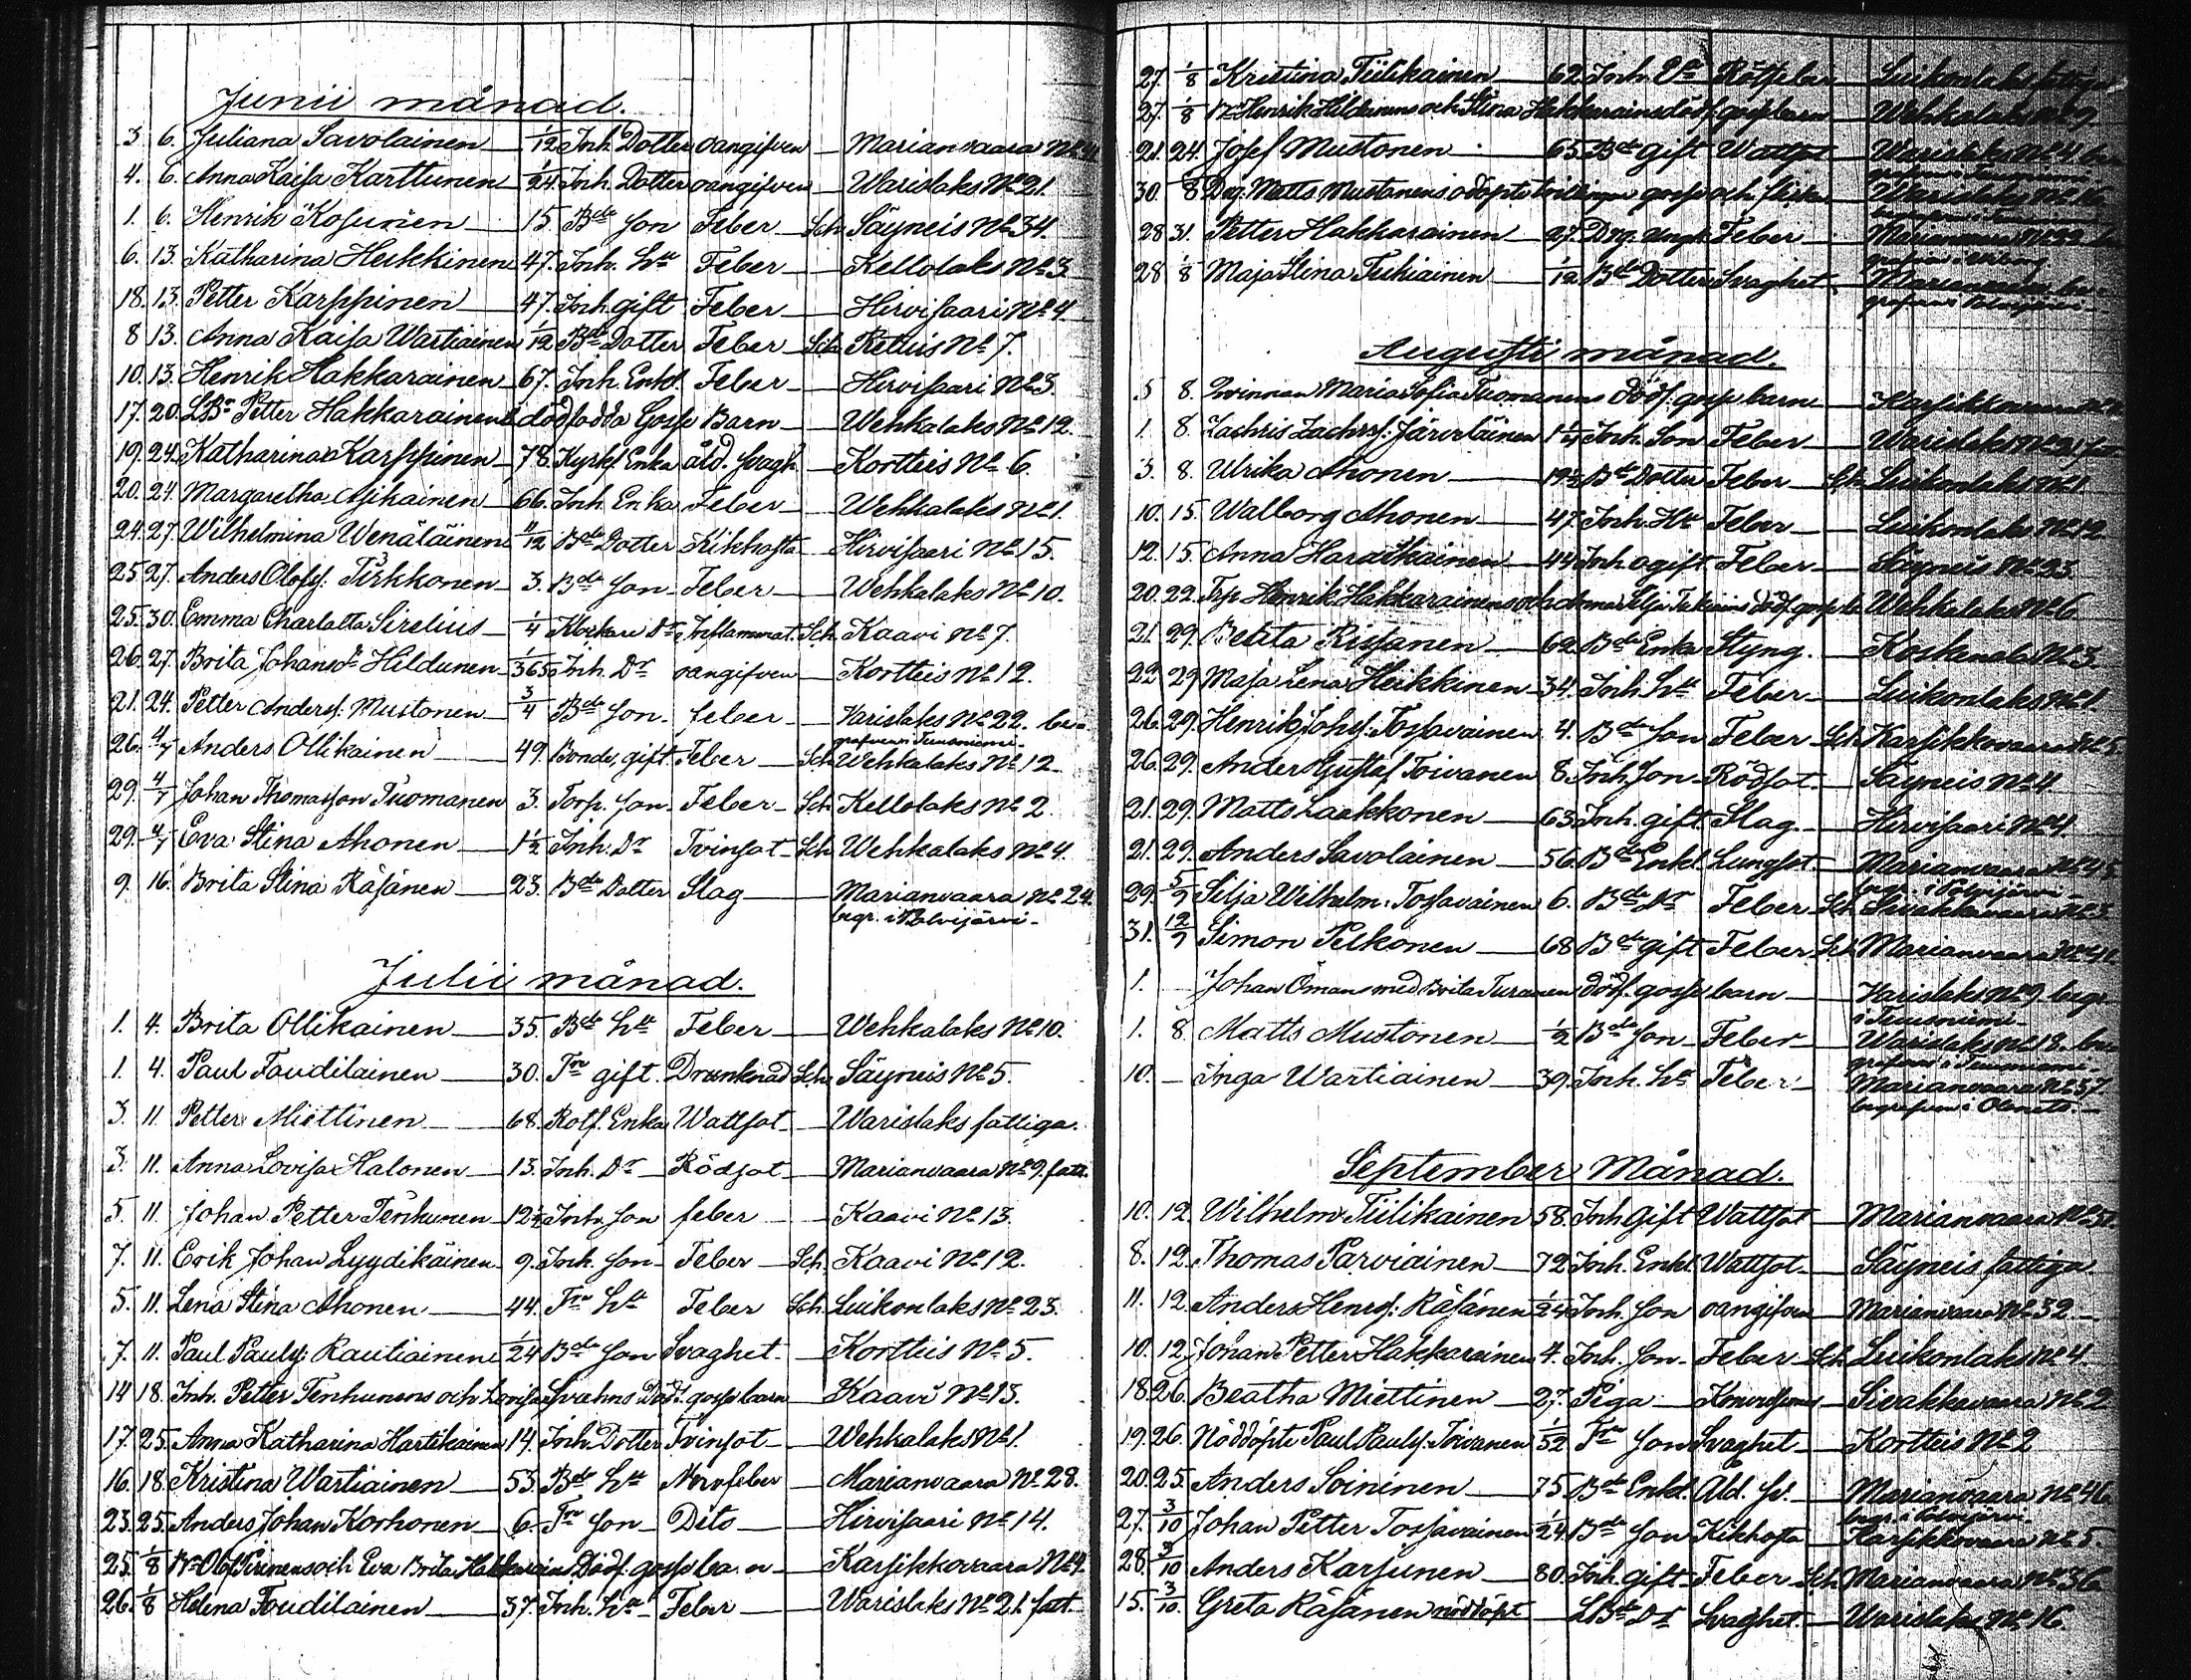 Junii månad.
3. 6. Juliana Savolainen 1/12 Inh. Dotter oangifven Marianvaara No
4. 6. Anna Kaisa Karttunen 1/24 Inh. Dotter oangifven Warislaks No 21.
1. 6. Henrik Kosunen 15. Bde Son Feber Sch. Säyneis No 34.
6. 13. Katharina Heikkinen 47. Inh. hu Feber Kellolaks No 3
18. 13. Petter Karppinen 47. Inh gift Feber Hirvisaari No 4
8 13. Anna Kaisa Wartiainen 1/12 Bde Dotter Feber Sch Retuis No 7.
10. 13. Henrik Hakkarainen 67. Inh. Enkl. Feber Hirvisaari No 3.
17. 20. LBr Petter Hakkarainens dödfödda Goss Barn Wehkalaks No 12.
19. 24. Katharina Karppinen 78. Kyrkf. Enka åld. svagh Kortteis No 6.
20. 24. Margaretha Asikainen 66. Inh. Enka Feber Wehkalaks No 1.
24. 27. Wilhelmina Wenäläinen 11/12 Bde Dotter Kikhosta Hirvisaari No 15.
25. 27. Anders Olofs: Tirkkonen 3. Bde Son Feber Wehkalaks No 10.
25. 30. Emma Charlotta Sirelius 1/4 Klockare Dr Inflammat. Sch. Kaavi No 7.
26. 27. Brita Johansdr Hildunen 1/365 Inh. Dr oangifven Kortteis No 12.
21. 24. Petter Anders: Mustonen 3/4 Bde Son. feber Varislaks No 22. be-
grafven i Tuusniemi.
26. 4/7 Anders Ollikainen 49. Bonde, gift Feber Sch Wehkalaks No 12
29. 4/7 Johan Thomasson Tuomanen 3. Torp. Son Feber Sch Kellolaks No 2.
29. 4/7 Eva Stina Ahonen 1 1/2 Inh. Dr Tvinsot Sch Wehkalaks No 4.
9. 16. Brita Stina Räsänen 23. Bde Dotter Slag Marianvaara No 24.
begr. i Polvijärvi.
Julii månad.
1. 4. Brita Ollikainen 35. Bde hu Feber Wehkalaks No 10.
1. 4. Paul Foudilainen 30. Trp gift. Drunknad Sch. Säyneis No 5.
3. 11. Petter Miettinen 68. Rotf. Enka Wattsot Warislaks fattiga.
3. 11. Anna Lovisa Halonen 13. Inh. Dr Rödsot Marianvaara No 9. fatt.
5. 11. Johan Petter Tenhunen 12 1/2 Inh Son feber Kaavi No 13.
7. 11. Erik Johan Lyydikäinen 9. Inh. Son Feber Sch. Kaavi No 12.
5. 11. Lena Stina Ahonen 44. Trp hu Feber Sch. Luikonlaks No 23.
7. 11. Paul Pauls: Rautiainen 1/24 Bde Son Svaghet. Kortteis No 5.
14 18. Inh. Petter Tenhunens och Lovisa Svahns Död. goss barn Kaavi No 13.
17. 25. Anna Katharina Hartikainen 14. Inh Dotter Tvinsot Wehkalaks No 1.
16. 18. Kristina Wartiainen 53. Bde hu Nervfeber Marianvaara No 28.
23. 25. Anders Johan Korhonen 6 Trp Son Dito Hirvisaari No 14.
25. 1/8 Br Olof och Eva Brita Död. goss barn Karsikkovaara No 4.
26. 1/8 Helena Foudilainen 37. Inh. hu Feber Warislaks No 21. fatt.
27. 1/8 Kristina Tiilikainen 62 Inh. Rötfeber Luikonlaks
27. 1/8 Br Henrik Hildunens och Stina Hakkarainens död. goss barn Wehkalaks No 9.
21. 24. Josef Mustonen 65. Bde gift Wattsot Warislaks No 4
30. 1/8 Drg. Matts Mustonens odöpta tvillingar goss och flicka Warislaks No 16
28 31. Petter Hakkarainen 27. Drg. ungk. Feber Marianvaara
28 1/8 Maja Stina Tukiainen 1/12 Bde Dotter Svaghet. Marianvaara be-
grafven i Polvijärvi.
Augusti månad.
5 8. Qvinnan Maria Sofia Tuomanens död. goss barn Karsikkovaara
1. 8. Zachris Zachriss: Järveläinen 1 1/4 Inh. Son Feber Warislaks
3. 8. Ulrika Ahonen 19 1/2 Bde Dotter Feber Sch Luikonlaks No 1
10. 15. Walborg Ahonen 47. Inh. Hu Feber Luikonlaks No 12
12. 15. Anna Haratikainen 44 Inh ogift Feber Säyneis No 23.
20. 22. Trp Henrik Hakkarainens och Anna Silja död. goss Wehkalaks No 6.
21. 29. Beata Rissanen 62 Bde Enka Styng. Koskenala No 3.
22 29 Maja Lena Heikkinen 34. Inh. hu Feber Luikonlaks No 1
26. 29. Henrik Johs: Tossavainen 4. Bde Son Feber Sch Karsikkovaara No 5
26. 29. Anders Gustaf Toivanen 8. Inh Son Rödsot. Säyneis No 4
21. 29. Matts Laakkonen 63. Inh. gift Slag. Hirvisaari No 4
21. 29. Anders Savolainen 56. Bde Enkl. Lungsot Marianvaara No 45
begr. i Polvijärvi
29. 5/9 Silja Wilhelm. Tossavainen 6. Bde Dr Feber Sch Sivakkavaara No 3
31. 12/9 Simon Pelkonen 68 Bde gift Feber Sch Marianvaara No 41
1. Johan Ömans med Brita Turanen död. goss barn Varislaks No 9. begr.
i Tuusniemi.
1. 8. Matts Mustonen 1/2 Bde Son Feber Warislaks No 18. be-
grafven i Tuusniemi.
10. Inga Wartiainen 39. Inh. hu Feber Marianvaara No 37.
begrafven i
September Månad.
10. 12. Wilhelm Tiilikainen 58. Inh Gift Wattsot Marianvaara
8. 12. Thomas Parviainen 72 Inh. Enkl Wattsot Säyneis fattiga
11. 12. Anders Henrs: Räsänen 1/24 Inh. Son oangifven Marianvaara No 32.
10. 12 Johan Petter Hakkarainen 4. Inh. Son Feber Sch Luikonlaks No 4
18. 26. Beatha Miettinen 27. Piga Sivakkavaara No 2
19. 26. Nöddöpte Paul Pauls: Toivanen 1/52 Trp Son Svaghet Kortteis No 2
20. 25. Anders Soininen 75. Bde Enkl. Åld. sv. Marianvaara No 46
begr. i Polvijärvi.
27. 3/10 Johan Petter Tossavainen 1/24 Bde Son Kikhosta Karsikkovaara No 5.
28. 3/10 Anders Karsunen 80. Inh. gift Feber Sch Marianvaara No 36
15. 3/10. Greta Räsänen nöddöpt LBde Dr Svaghet. Warislaks No 16.